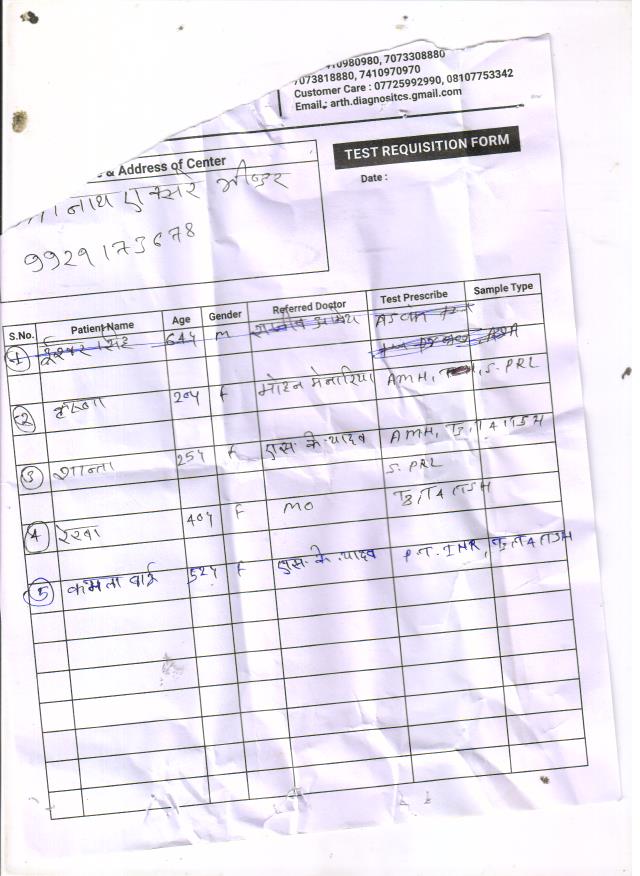 0980980, 7073308880
7073818880, 7410970970
Customer Care : 07725992990, 08107753342
Email : arth.diagnositcs.gmail.com
TEST REQUISITION FORM
& Address of Center
Date :
नाथ एक्सरे भीण्डर
9929173678
S.No. Patient Name Age Gender Referred Doctor Test Prescribe Sample Type
1 ईश्वर सिंह 64Y M
2 204 F मोहन मेनारिया AMH, S. PRL
3 शान्ता 25Y F एस. के. यादव AMH, T3, T4 TSH
S. PRL
4 रेखा 40Y F MO T3, T4 TSH
5 कमला बाई 52Y F एस. के. यादव P.T. INR, T3, T4 TSH